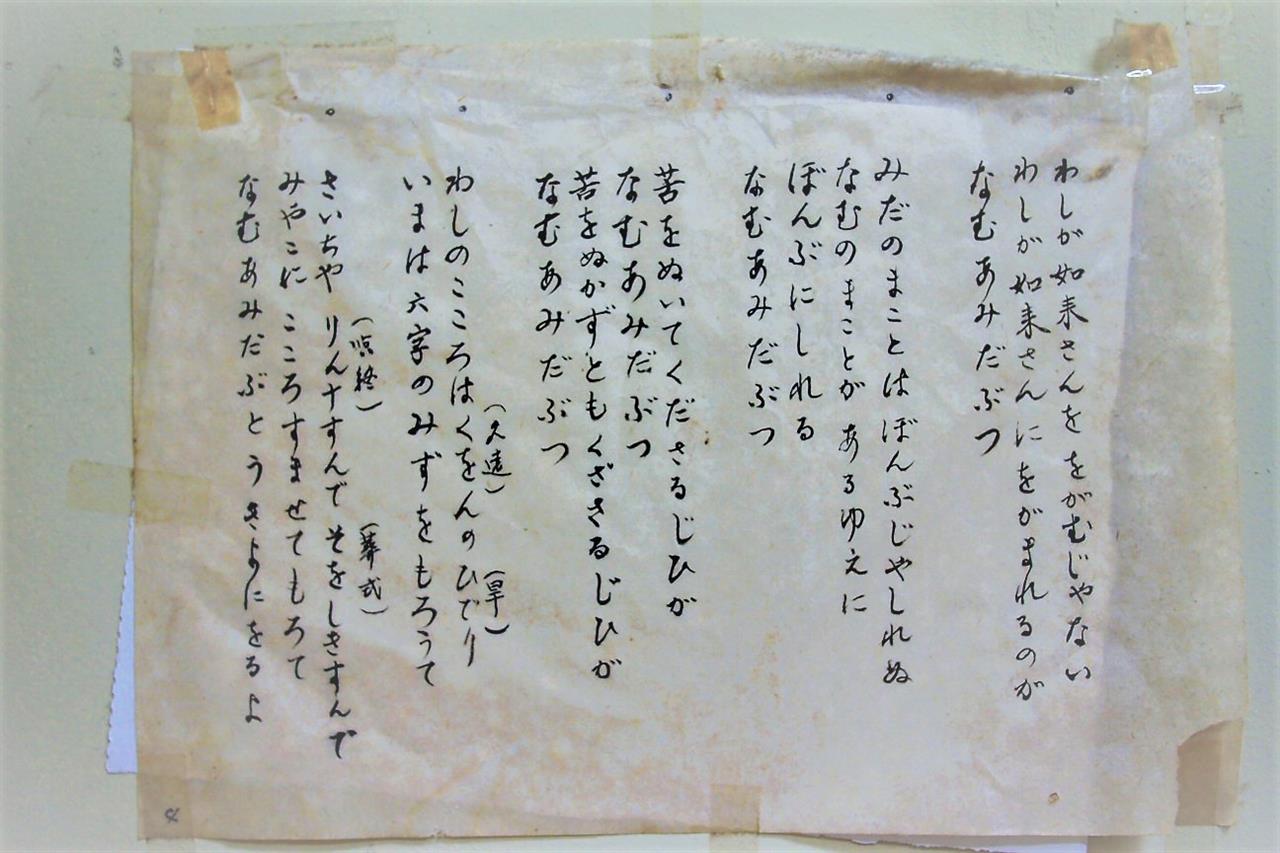 わしが如来さんををがむじゃない
わしが如来さんにをがまれるのが
なむあみだぶつ
みだのまことはぼんぶじやしれぬ
なむのまことがあるゆえに
ぼんぶにしれる
なむあみだぶつ
苦をぬいてくださるじひが
なむあみだぶつ
苦をぬかずともくださるじひが
なむあみだぶつ
(久遠) (旱)
わしのこころはくをんのひでり
いまは六字のみずをもろうて
(臨終) (葬式)
さいちや りん十すんで そをしきすんで
みやこに こころすませてもろて
なむあみだぶと うきよにをるよ